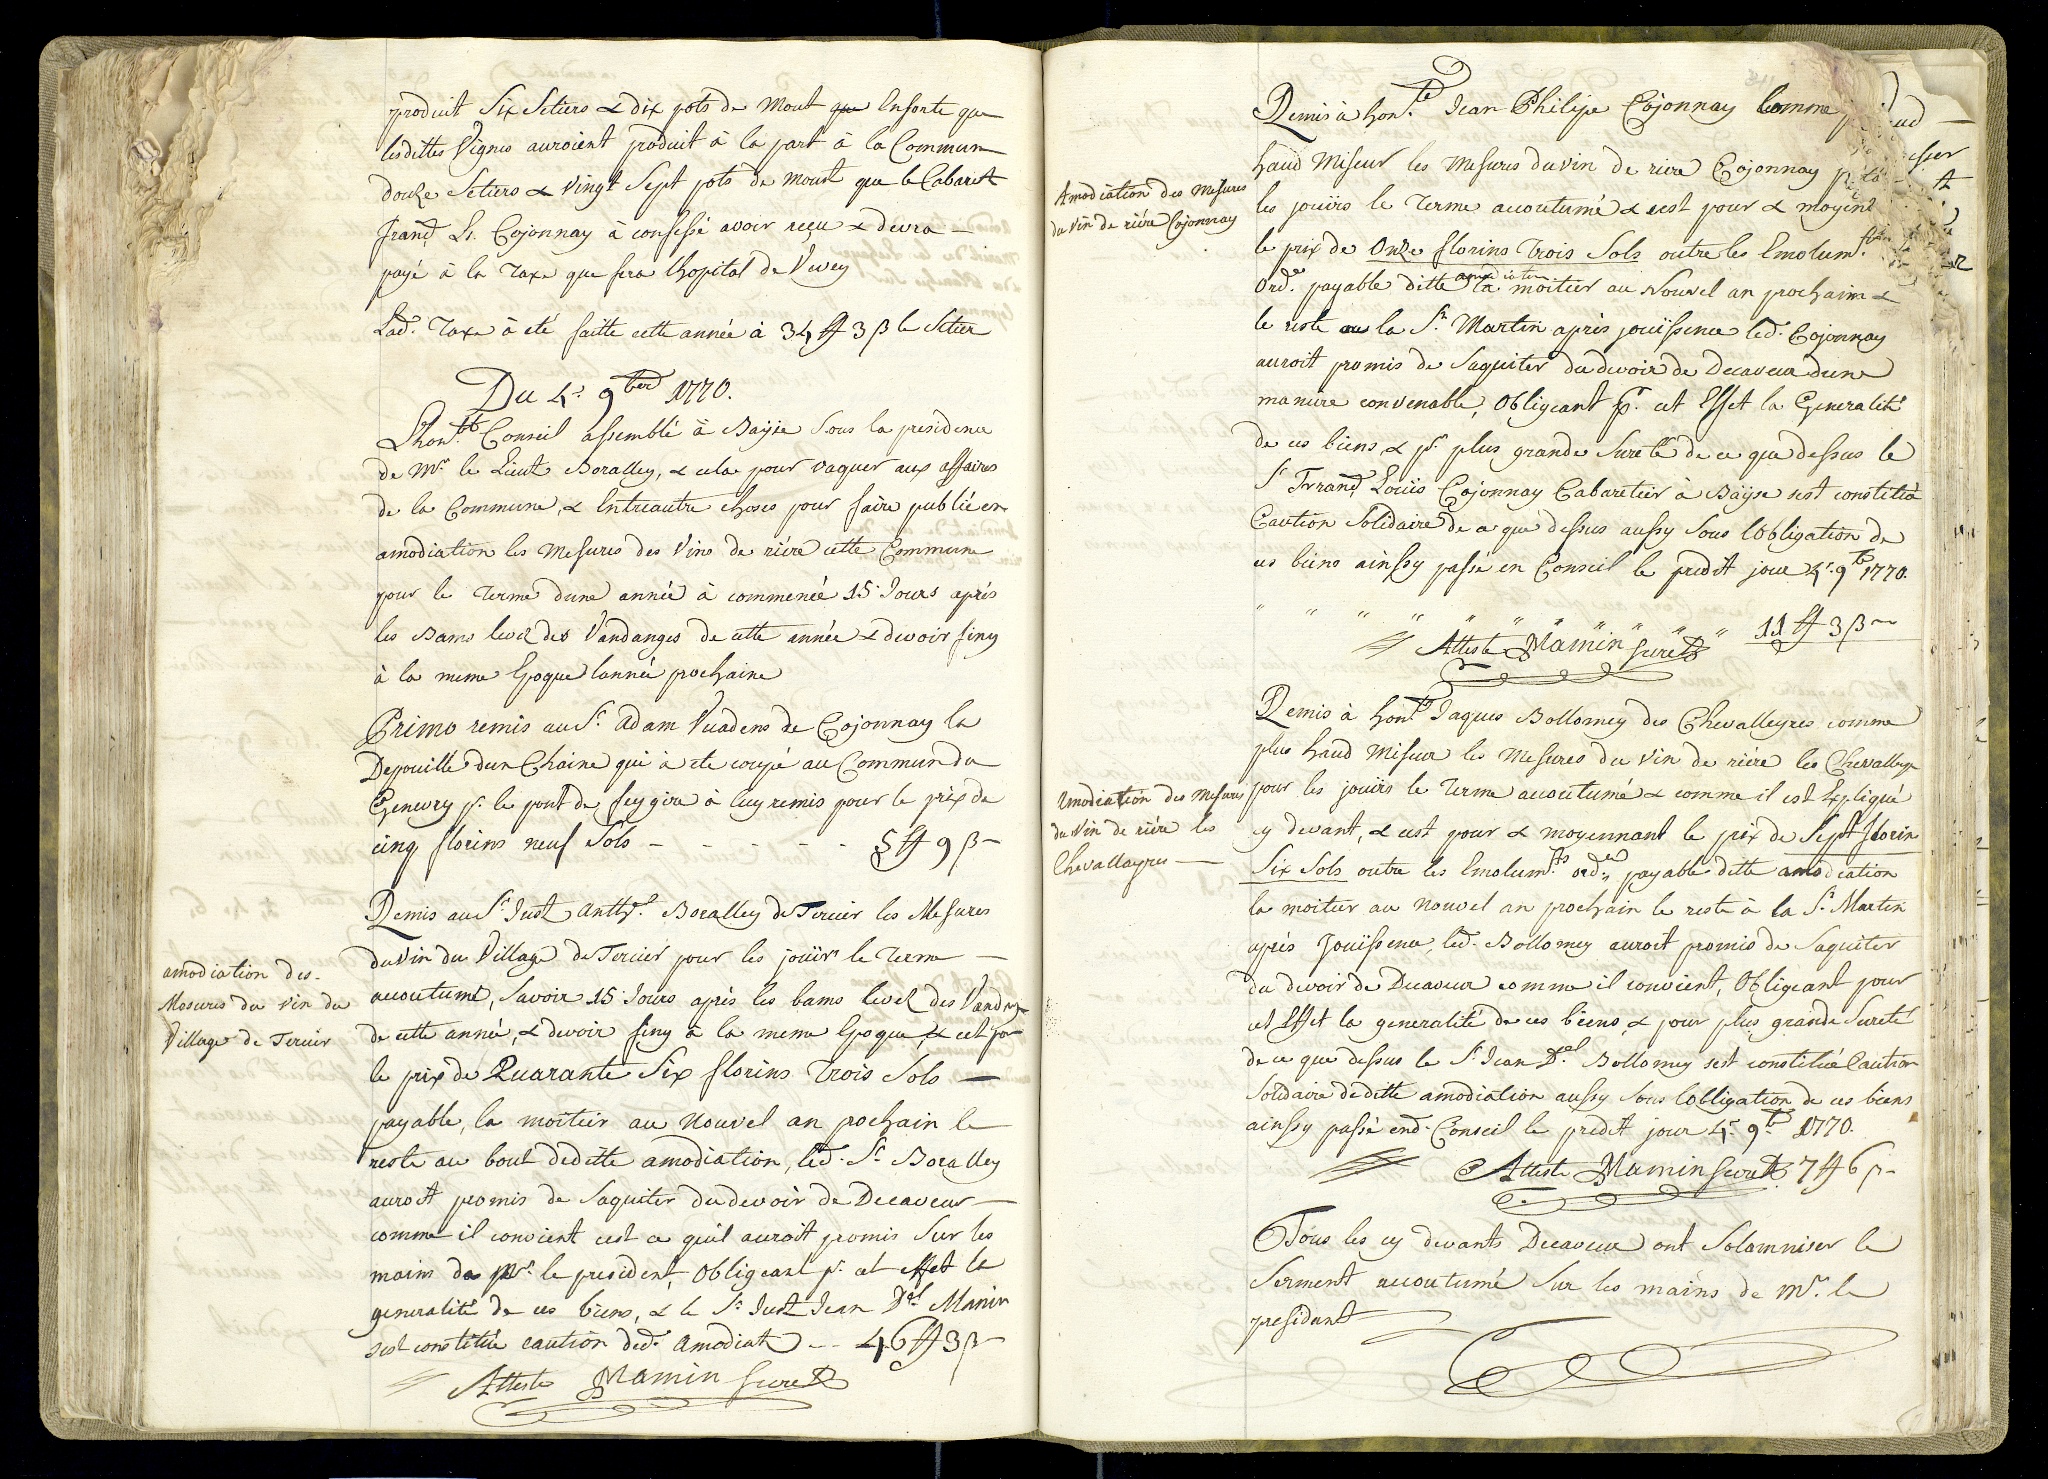 produit Six Setiers & dix pots de Mout que Ensorte que
lesdittes Vignes auroient produit à la part à la Commun
douze Setiers & Vingt Sept pots de Moust que le Cabaret
frand Ls. Cojonnay à confessé avoir reçu & devra —
payé à la Taxe que fera lhopital de Vevey
Lad.e Taxe à eté faitte cette année à 34 ff 3 β le Setier
Du 4.e 9bre 1770.
Lhon.ble Conseil assemblé à Bayse Sous la presidence
de Mr. le Lieut Boralley, & cela pour vaquer aux affaires
de la Commune, & Entreautre choses pour faire publié en
amodiation les Mesures des Vins de riére cette Commune
pour le Terme dune année à commencé 15 Jours aprés
les Bams levez des Vandanges de cette année & devoir finy
à la meme Epoque lannée prochaine
Primo remis au Sr. Adam Vuadens de Cojonnay la
Depouille dun Chaine qui à ete coupé au Commun du
Genevry pr. le pont de feygire à luy remis pour le prix de
cinq florins neuf Sols - - - - - 5 ff 9 β —
Remis au Sr. Just Anth.e Boralley de Tercier les Mesures
amodiation des
Mesures du vin du
Village de Tercier
du Vin du Village de Tercier pour les jouïr le Terme —
acoutumé, Savoir 15 Jours aprés les bams levez des Vandng
de cette année, & devoir finy à la meme Epoque, & cet po
le prix de Quarante Six florins Trois Sols —
payable, la moitier au Nouvel an prochain le
reste au bout deditte amodiation, led. Sr. Boralley
auroit promis de Saquiter du devoir de Decaveur —
comme il convient cest ce quil auroit promis Sur les
mains de Mr. le president, Obligeant pr. cet effet la
generalité de ces biens, & le Sr. Just Jean Del Mamin
sest constitué caution ded.e Amodiat -- 46 ff 3 β —
Atteste Mamin Secret
Remis à hon.te Jean Philipe Cojonnay Comme
haud Miseur les Mesures du vin de riére Cojonnay
Amodiation des Mesures
du Vin de riére Cojonnay
les jouïrs le Terme acoutumé & cest pour & moyent
le prix de Onze florins Trois Sols outre les Emolum.ts
Ord.e payable ditte amodiation la moitier au Nouvel an prochaim &
le reste au la St. Martin après jouïssence led. Cojonnay
auroit promis de Saquiter du devoir de Decaveur dune
maniere convenable, Obligeant pr. cet Effet la Generalité
de ces biens, & pr. plus grande Sureté de ce que dessus le
Sr. Frrand Louïs Cojonnay Cabaretier à Bayse sest constitué
Caution Solidaire de ce que dessus aussy Sous lObligation de
ces biens ainssy passé en Conseil le predit jour 4.e 9b 1770.
" " " " " " " " " 11 ff 3 β —
Atteste Mamin Secret
Remis à hon.te Jaques Bollomey des Chevalleyres comme
plus haud Miseur les Mesures du Vin de riére les Chevalleyr
Amodiation des Mesures
du Vin de riére les
Chevalleyres —
pour les jouïrs le Terme acoutumé & comme il est Expliqué
cy devant, & cest pour & moyennant le prix de Sept florin
Six Sols outre les Emolum.ts ord.es payable ditte amodiation
la moitier au nouvel an prochain le reste à la St. Martin
aprés Jouïssence, led. Bollomey auroit promis de Saquiter
du devoir de Decaveur comme il convient, Obligeant pour
cet Effet la generalité de ces biens, & pour plus grande Sureté
de ce que dessus le Sr. Jean D.el Bollomey sest constitué Caution
Solidaire deditte amodiation aussy Sous lobligation de ces biens
ainssy passé end. Conseil le predit jour 4e 9b 1770.
Atteste Mamin Secret 7 ff 6 β —
Tous les cy devants Decaveur ont Solamniser le
Serment acoutumé Sur les mains de Mr. le
president